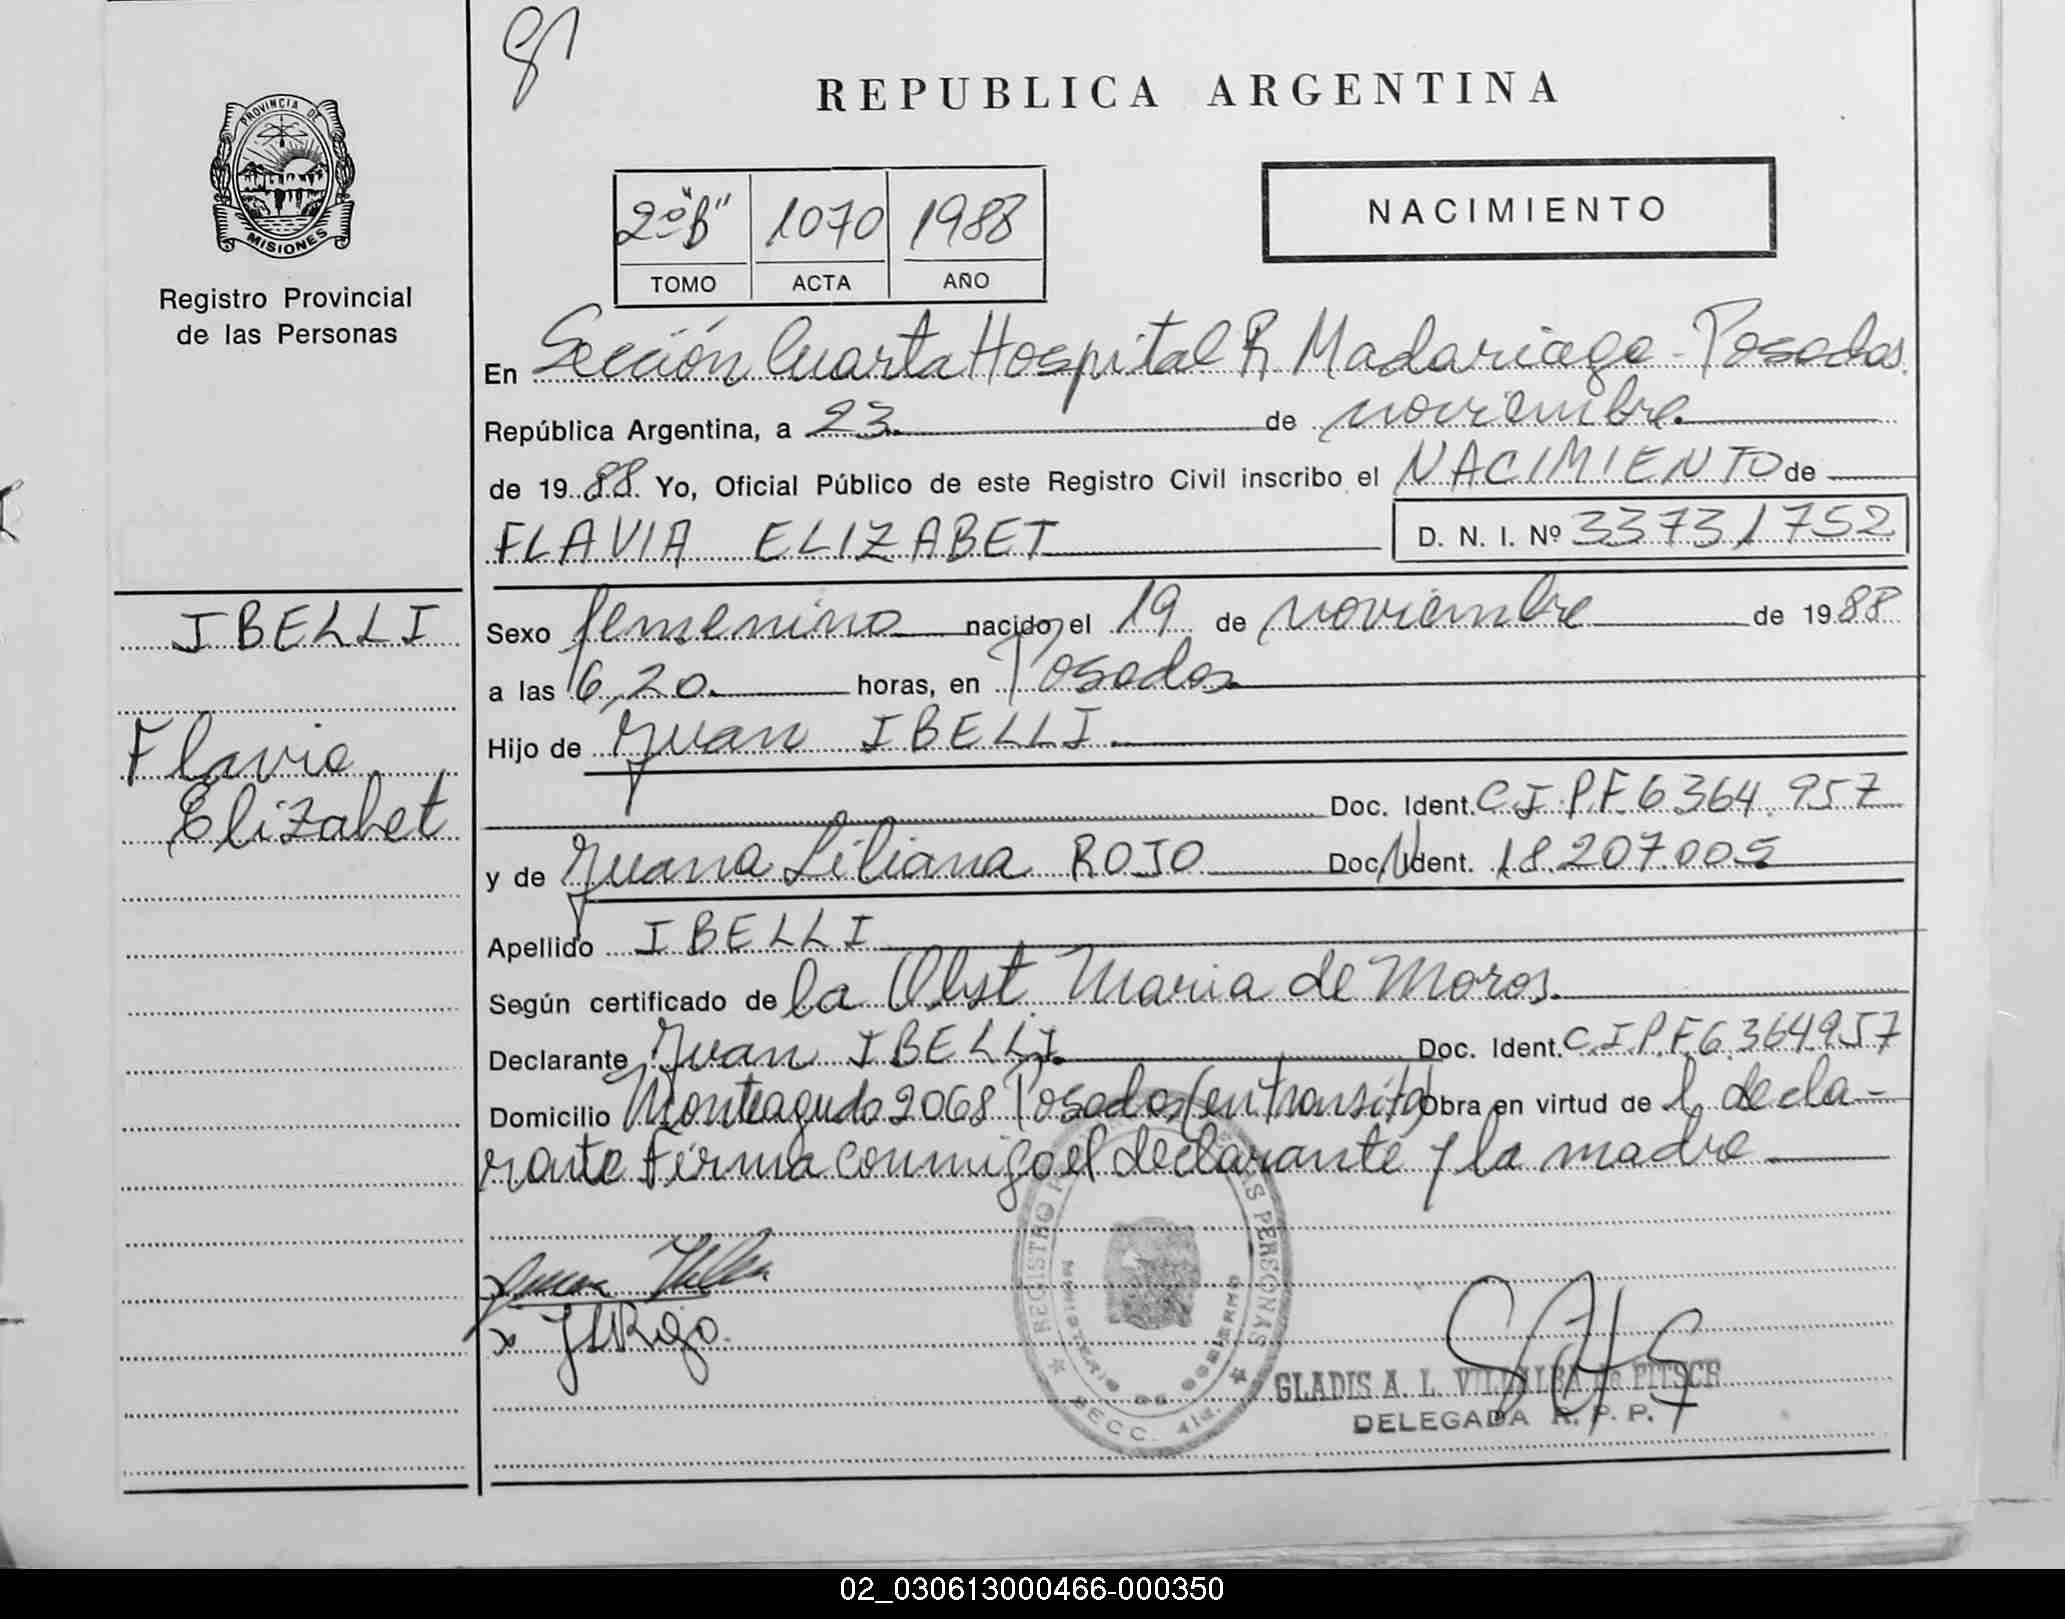 91
REPUBLICA ARGENTINA
PROVINCIA DE
MISIONES
Registro Provincial
de las Personas
2º "B" 1070 1988
TOMO ACTA AÑO
NACIMIENTO
En Sección Cuarta Hospital R Madariaga - Posadas.
República Argentina, a 23. de noviembre.
de 1988. Yo, Oficial Público de este Registro Civil inscribo el NACIMIENTO de
FLAVIA ELIZABET D. N. I. Nº 33731752
IBELLI
Flavia
Elizabet
Sexo femenino nacido el 19 de noviembre de 1988
a las 6,20. horas, en Posadas
Hijo de Juan IBELLI.
Doc. Ident. C I P F 6364.957
y de Juana Liliana ROJO Doc. Ident. 18.207.005
Apellido IBELLI
Según certificado de la Obst. Maria de Moros.
Declarante Juan IBELLI. Doc. Ident. C.I.P.F.6.364.957
Domicilio Monteagudo 2068 Posadas (en transito) Obra en virtud de l decla-
rante Firma conmigo el declarante y la madre
x
x JLRojo.
REGISTRO AS PERSONAS
MINISTERIO DE GOBIERNO
SECC. 4ta.
GLADIS A. L. VILLALBA de FITSCH
DELEGADA R. P. P.
02_030613000466-000350